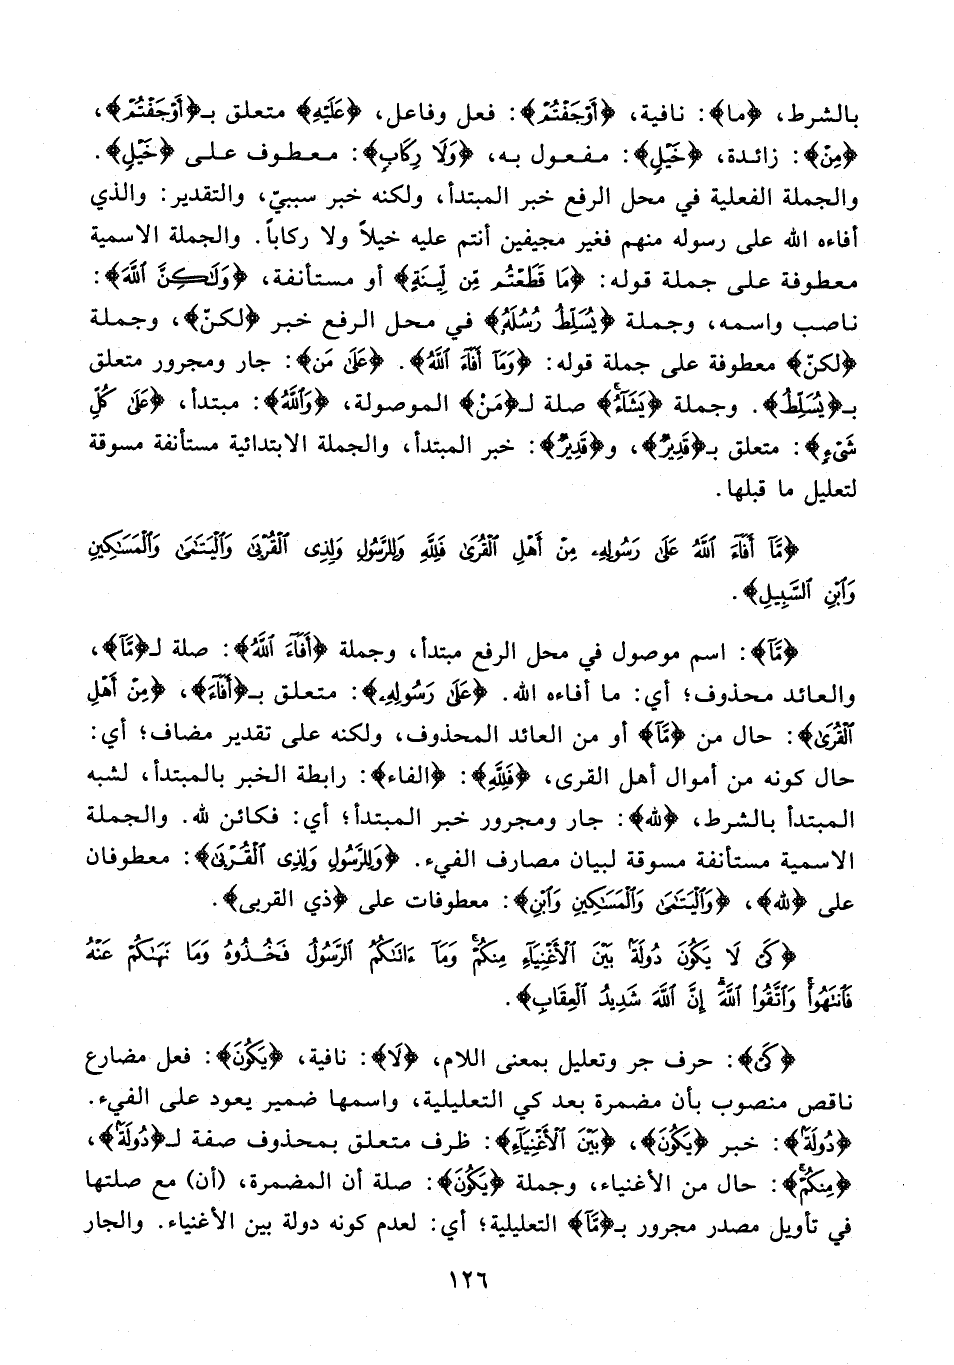 بالشرط، ﴿ما﴾: نافية، ﴿أَوْجَفْتُمْ﴾: فعل وفاعل، ﴿عَلَيْهِ﴾ متعلق بـ﴿أَوْجَفْتُمْ﴾،
﴿مِنْ﴾: زائدة، ﴿خَيْلٍ﴾: مفعول به، ﴿وَلَا رِكَابٍ﴾: معطوف على ﴿خَيْلٍ﴾.
والجملة الفعلية في محل الرفع خبر المبتدأ، ولكنه خبر سببيّ، والتقدير: والذي
أفاءه الله على رسوله منهم فغير مجيفين أنتم عليه خيلاً ولا ركاباً. والجملة الاسمية
معطوفة على جملة قوله: ﴿مَا قَطَعْتُم مِّن لِّينَةٍ﴾ أو مستأنفة، ﴿وَلَٰكِنَّ ٱللَّهَ﴾:
ناصب واسمه، وجملة ﴿يُسَلِّطُ رُسُلَهُۥ﴾ في محل الرفع خبر ﴿لكنّ﴾، وجملة
﴿لكنّ﴾ معطوفة على جملة قوله: ﴿وَمَآ أَفَآءَ ٱللَّهُ﴾. ﴿عَلَىٰ مَن﴾: جار ومجرور متعلق
بـ﴿يُسَلِّطُ﴾. وجملة ﴿يَشَآءُۚ﴾ صلة لـ﴿مَنْ﴾ الموصولة، ﴿وَٱللَّهُ﴾: مبتدأ، ﴿عَلَىٰ كُلِّ
شَىْءٍ﴾: متعلق بـ﴿قَدِيرٌ﴾، و﴿قَدِيرٌ﴾: خبر المبتدأ، والجملة الابتدائية مستأنفة مسوقة
لتعليل ما قبلها.
﴿مَّآ أَفَآءَ ٱللَّهُ عَلَىٰ رَسُولِهِۦ مِنْ أَهْلِ ٱلْقُرَىٰ فَلِلَّهِ وَلِلرَّسُولِ وَلِذِى ٱلْقُرْبَىٰ وَٱلْيَتَٰمَىٰ وَٱلْمَسَٰكِينِ
وَٱبْنِ ٱلسَّبِيلِ﴾.
﴿مَّآ﴾: اسم موصول في محل الرفع مبتدأ، وجملة ﴿أَفَآءَ ٱللَّهُ﴾: صلة لـ﴿مَّآ﴾،
والعائد محذوف؛ أي: ما أفاءه الله. ﴿عَلَىٰ رَسُولِهِۦ﴾: متعلق بـ﴿أَفَآءَ﴾، ﴿مِنْ أَهْلِ
ٱلْقُرَىٰ﴾: حال من ﴿مَّآ﴾ أو من العائد المحذوف، ولكنه على تقدير مضاف؛ أي:
حال كونه من أموال أهل القرى، ﴿فَلِلَّهِ﴾: ﴿الفاء﴾: رابطة الخبر بالمبتدأ، لشبه
المبتدأ بالشرط، ﴿لله﴾: جار ومجرور خبر المبتدأ؛ أي: فكائن لله. والجملة
الاسمية مستأنفة مسوقة لبيان مصارف الفيء. ﴿وَلِلرَّسُولِ وَلِذِى ٱلْقُرْبَىٰ﴾: معطوفان
على ﴿لله﴾، ﴿وَٱلْيَتَٰمَىٰ وَٱلْمَسَٰكِينِ وَٱبْنِ﴾: معطوفات على ﴿ذي القربى﴾.
﴿كَىْ لَا يَكُونَ دُولَةًۢ بَيْنَ ٱلْأَغْنِيَآءِ مِنكُمْۚ وَمَآ ءَاتَىٰكُمُ ٱلرَّسُولُ فَخُذُوهُ وَمَا نَهَىٰكُمْ عَنْهُ
فَٱنتَهُوا۟ۚ وَٱتَّقُوا۟ ٱللَّهَۖ إِنَّ ٱللَّهَ شَدِيدُ ٱلْعِقَابِ﴾.
﴿كَىْ﴾: حرف جر وتعليل بمعنى اللام، ﴿لَا﴾: نافية، ﴿يَكُونَ﴾: فعل مضارع
ناقص منصوب بأن مضمرة بعد كي التعليلية، واسمها ضمير يعود على الفيء.
﴿دُولَةًۢ﴾: خبر ﴿يَكُونَ﴾، ﴿بَيْنَ ٱلْأَغْنِيَآءِ﴾: ظرف متعلق بمحذوف صفة لـ﴿دُولَةًۢ﴾،
﴿مِنكُمْۚ﴾: حال من الأغنياء، وجملة ﴿يَكُونَ﴾: صلة أن المضمرة، (أن) مع صلتها
في تأويل مصدر مجرور بـ﴿مَّآ﴾ التعليلية؛ أي: لعدم كونه دولة بين الأغنياء. والجار
١٢٦